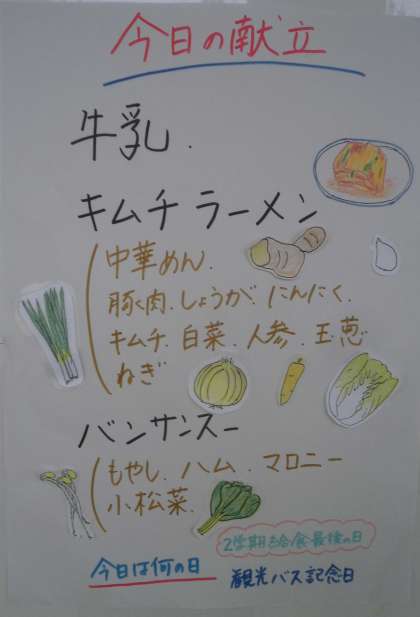 今日の献立
牛乳.
キムチラーメン
中華めん.
豚肉.しょうが.にんにく.
キムチ.白菜.人参.玉葱
ねぎ
バンサンスー
もやし.ハム.マロニー
小松菜.
2学期給食最後の日
今日は何の日 観光バス記念日